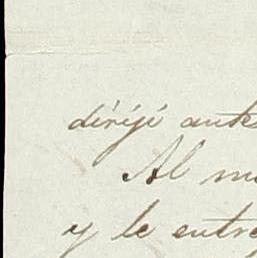 dirijí antes
Al m
y le entre